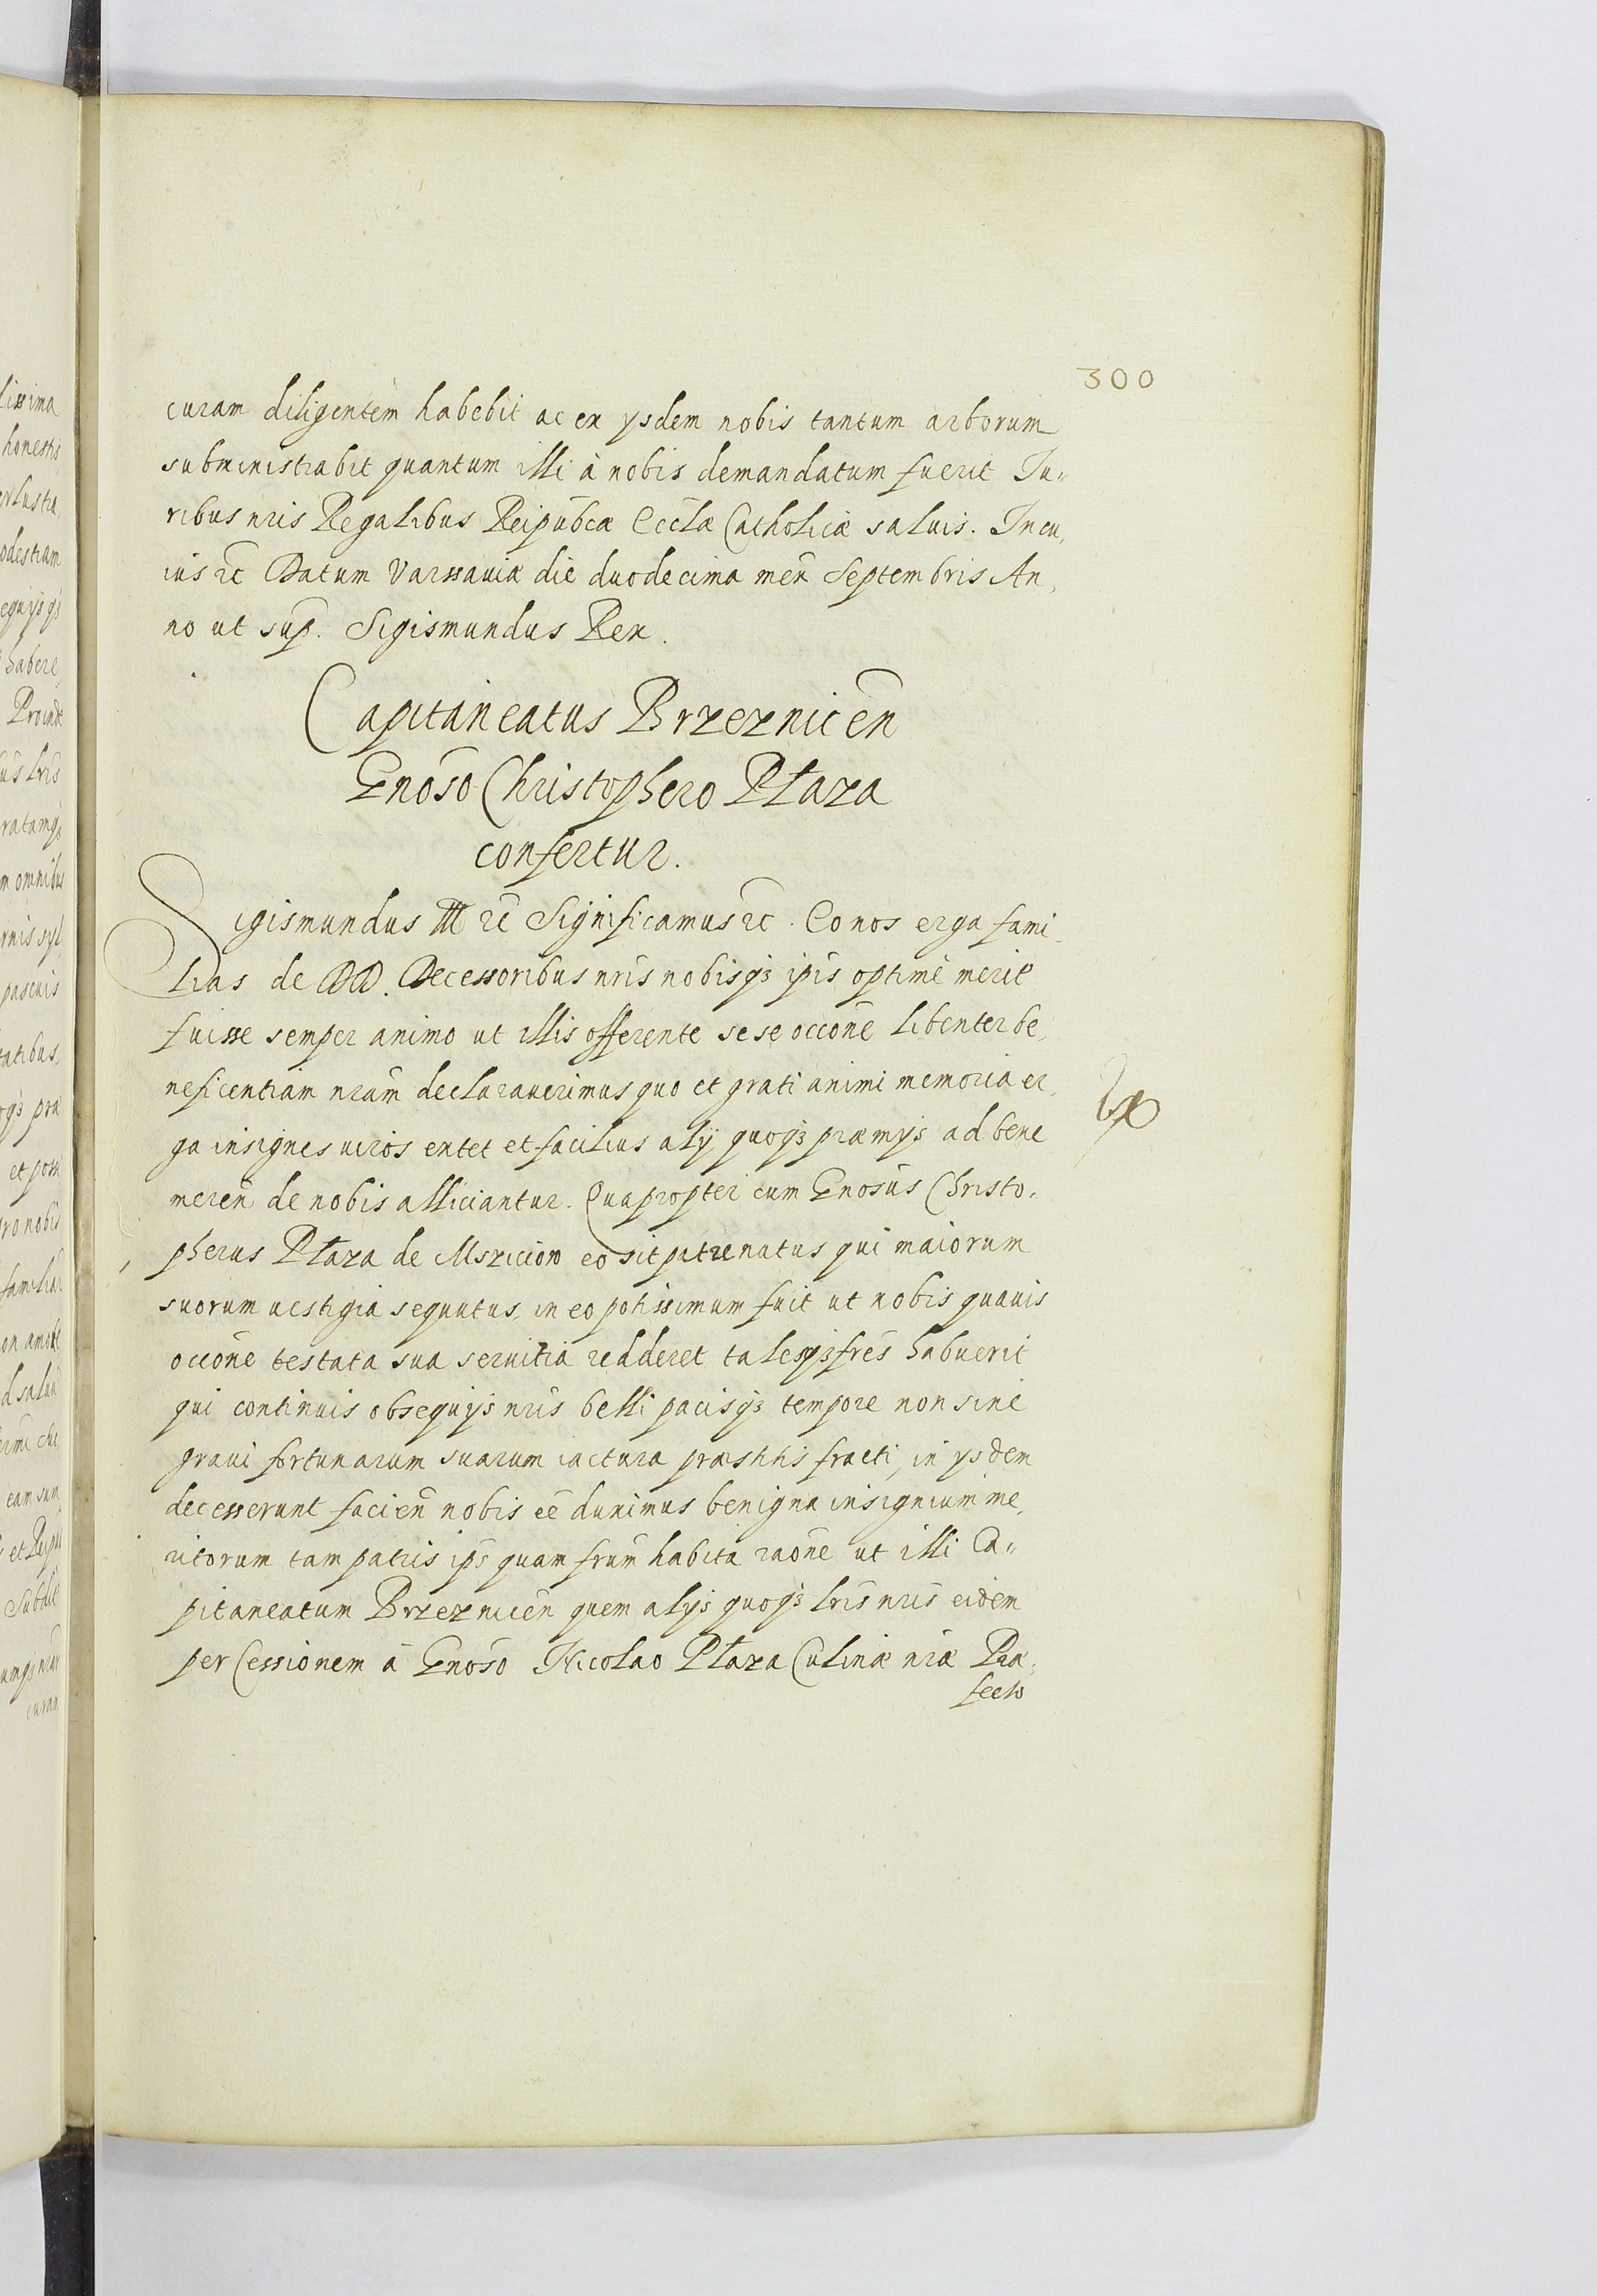 300
curam diligentem habebit ac ex ysdem nobis tantum arborum
subministrabit quantum illi à nobis demandatum fuerit Iu„
ribus nris Regalibus Reipubcæ Ecclæ Catholicæ saluis. In cu,
ius etc Datum Varssauiæ die duodecima men̄ Septembris An,
no ut sup. Sigismundus Rex.
Capitaneatus Brzeznicen̄
Gnoso Christophero Płaza
confertur.
Sigismundus III etc Significamus etc. Eo nos erga fami„
lias de DD. Decessoribus nris nobisq3 ipis optimè merit
fuisse semper animo ut illis offerente sese occone libenter be,
neficentiam nram declarauerimus quo et grati animi memoria er,
ga insignes uiros extet et facilius alÿ quoq3 præmys ad bene
meren̄ de nobis alliciantur. Quapropter cum Gnosus Christo,
pherus Płaza de Msziciow eo sit patre natus qui maiorum
suorum uestigia sequutus, in eo potissimum fuit ut nobis quauis
occone testata sua seruitia redderet talesq3 fres habuerit
qui continuis obsequys nris belli pacisq3 tempore non sine
graui fortunarum suarum iactura præstitis fracti, in ysdem
decesserunt facien̄ nobis ee duximus benigna insignium me,
ritorum tam patris ips quam frum habita raone ut illi Ca„
pitaneatum Brzeznicen̄ quem alys quoq3 lris nris eidem
per Cessionem à Gnoso Nicolao Płaza Culinæ nræ Præ,
fecto
lissima
honestis
odestiam
habere,
Proinde
us lris
ratamq3
m omnibus
pascuis
tatibus,
et poss
ro nobis
familiar
eam sum
curam